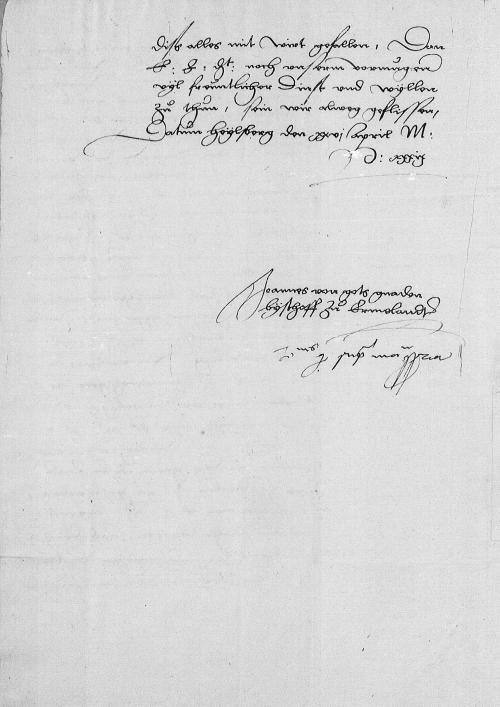 diss alles nit wirt gefallen, Dan
E: F: Gt: noch unserm vormugen
vyl freuntlicher dinst und wyllen
zu thun, sein wir alweg geflissen,
Datum Heylsberg den xxvj april M:
D: xxxij
Joannes von gots gnaden
byschoff zu Ermelandt
manu